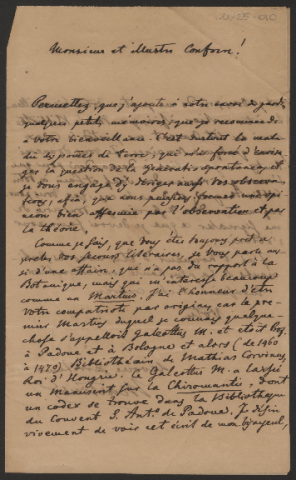 Monsieur et illustre Confrère!
Permettez, que j'ajoute à notre envoi de jeudi
quelques petits mémoires, que je recommande
à votre bienveillance. C'est surtout la mala-
die des pommes de terre, qui m'a forcé d'envisa-
ger la question de la génération spontanée, et
je vous engage d'y diriger aussi vos observa-
tions, afin que nous puissions former une opi-
nion bien affermie par l'observation et par
la théorie.
Comme je sais, que vous êtes toujours prêt à
des secours litéraires, je vous parle aus-
si d'une affaire, qui n'a pas du rapport à la
Botanique, mais qui m'interesse beaucoup
comme un Martius. J'ai l'honneur d'être
votre compatriote par origine, car le pre-
mier Martius duquel je connais quelque
chose s'appelloit Galeottus M. et étoit Prof.
à Padoue et à Bologne et alors (de 1460
à 1470) Bibliothécaire de Mathias Corvinus,
Roi d'Hongrie. Ce Galeottus M. a laissé
un manuscrit sur la Chiromantie, dont
un codex se trouve dans la Bibliothèque
du Couvent S. Ant. de Padoue. Je désire
vivement de voir cet écrit de mon bisayeul,